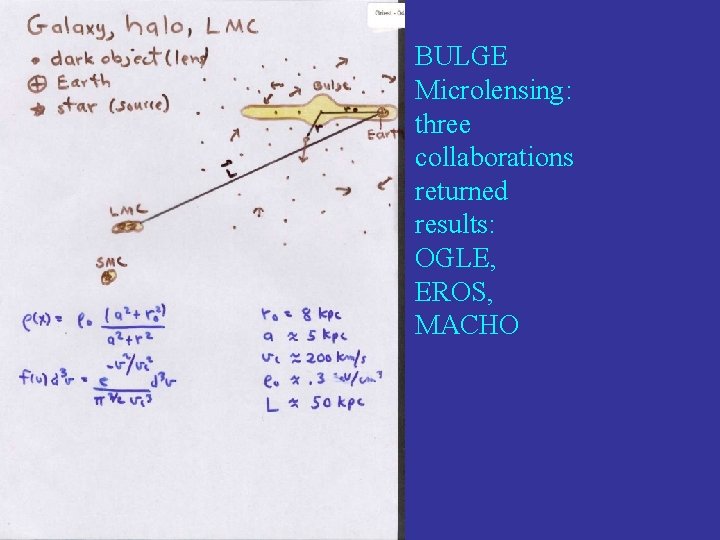 Galaxy, halo, LMC
• dark object (lens)
⊕ Earth
★ star (source)
Bulge
r₀
r
Earth
L
LMC
SMC
ρ(x) = ρ₀ (a²+r₀²) / (a²+r²)
f(v)d³v = e^(-v²/v_c²) / (π^(3/2) v_c³) d³v
r₀ = 8 kpc
a ≈ 5 kpc
v_c ≈ 200 km/s
ρ₀ ≈ .3 GeV/cm³
L ≈ 50 kpc
BULGE
Microlensing:
three
collaborations
returned
results:
OGLE,
EROS,
MACHO